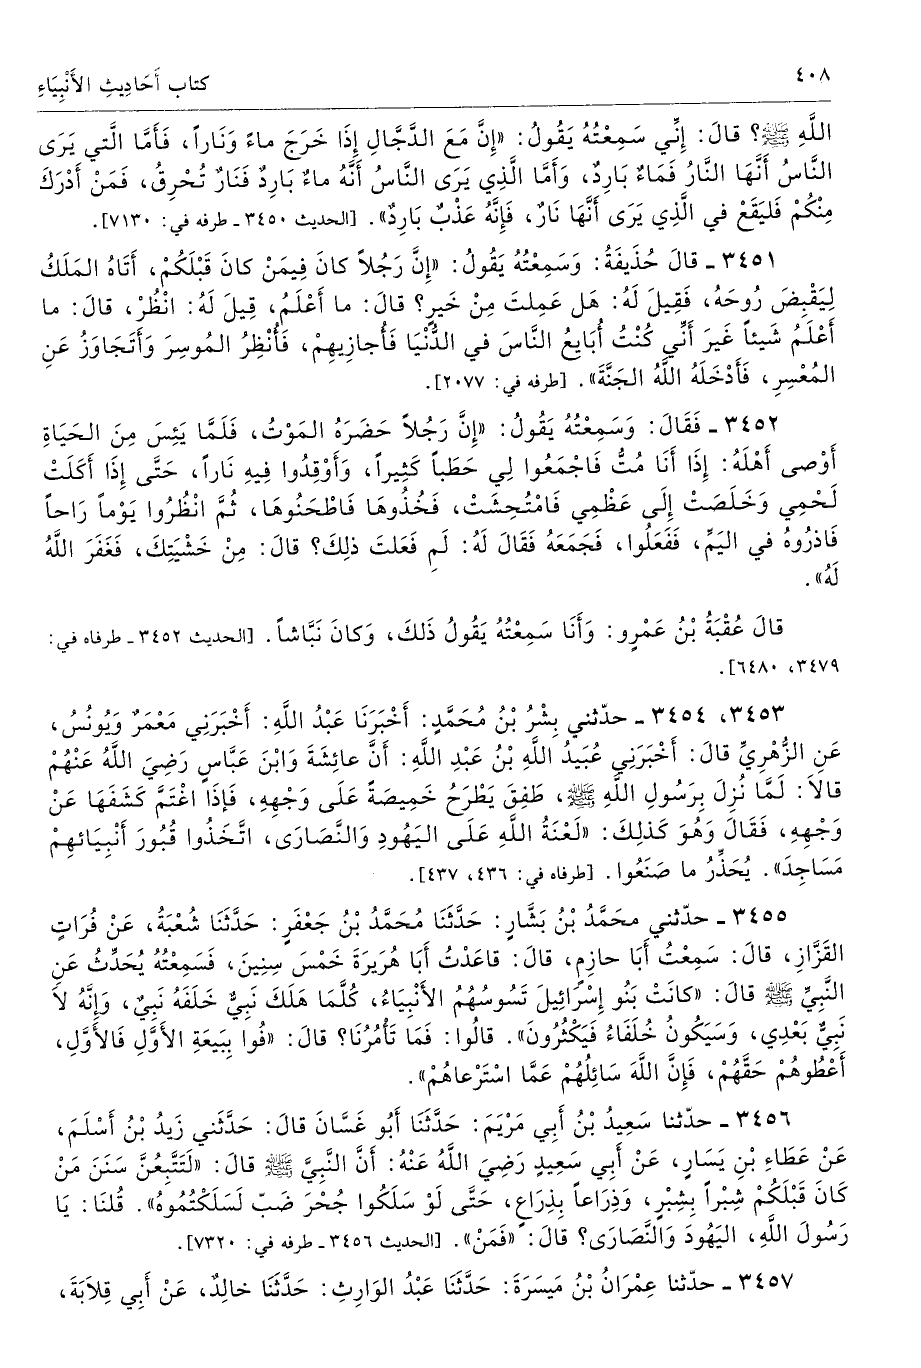 ٤٠٨
كتاب أَحَادِيثِ الأَنْبِيَاءِ
اللَّهِ ﷺ؟ قالَ: إِنِّي سَمِعْتُهُ يَقُولُ: «إِنَّ مَعَ الدَّجَّالِ إِذَا خَرَجَ ماءً وَنَاراً، فَأَمَّا الَّتي يَرَى
النَّاسُ أَنَّهَا النَّارُ فَمَاءٌ بَارِدٌ، وَأَمَّا الَّذِي يَرَى النَّاسُ أَنَّهُ ماءٌ بَارِدٌ فَنَارٌ تُحْرِقُ، فَمَنْ أَدْرَكَ
مِنْكُمْ فَليَقَعْ في الَّذِي يَرَى أَنَّهَا نَارٌ، فَإِنَّهُ عَذْبٌ بَارِدٌ». [الحديث ٣٤٥٠ ـ طرفه في: ٧١٣٠].
٣٤٥١ ـ قالَ حُذَيفَةُ: وَسَمِعْتُهُ يَقُولُ: «إِنَّ رَجُلاً كانَ فِيمَنْ كانَ قَبْلَكُمْ، أَتَاهُ المَلَكُ
لِيَقْبِضَ رُوحَهُ، فَقِيلَ لَهُ: هَل عَمِلتَ مِنْ خَيرٍ؟ قالَ: ما أَعْلَمُ، قِيلَ لَهُ: انْظُرْ، قالَ: ما
أَعْلَمُ شَيئاً غَيرَ أَنِّي كُنْتُ أُبَايعُ النَّاسَ في الدُّنْيَا فَأُجازِيهِمْ، فَأُنْظِرُ المُوسِرَ وَأَتَجَاوَزُ عَنِ
المُعْسِرِ، فَأَدْخَلَهُ اللَّهُ الجَنَّةَ». [طرفه في: ٢٠٧٧].
٣٤٥٢ ـ فَقَالَ: وَسَمِعْتُهُ يَقُولُ: «إِنَّ رَجُلاً حَضَرَهُ المَوْتُ، فَلَمَّا يَئِسَ مِنَ الحَيَاةِ
أَوْصى أَهْلَهُ: إِذَا أَنَا مُتُّ فَاجْمَعُوا لِي حَطَباً كَثِيراً، وَأَوْقِدُوا فِيهِ نَاراً، حَتَّى إِذَا أَكَلَتْ
لَحْمِي وَخَلَصَتْ إِلَى عَظْمِي فَامْتُحِشَتْ، فَخُذُوهَا فَاطْحَنُوهَا، ثُمَّ انْظُرُوا يَوْماً رَاحاً
فَاذْرُوهُ في اليَمِّ، فَفَعَلُوا، فَجَمَعَهُ فَقَالَ لَهُ: لِمَ فَعَلتَ ذلِكَ؟ قالَ: مِنْ خَشْيَتِكَ، فَغَفَرَ اللَّهُ
لَهُ».
قالَ عُقْبَةُ بْنُ عَمْرٍو: وَأَنَا سَمِعْتُهُ يَقُولُ ذَلكَ، وَكانَ نَبَّاشاً. [الحديث ٣٤٥٢ ـ طرفاه في:
٣٤٧٩، ٦٤٨٠].
٣٤٥٣، ٣٤٥٤ ـ حدّثني بِشْرُ بْنُ مُحَمَّدٍ: أَخْبَرَنَا عَبْدُ اللَّهِ: أَخْبَرَنِي مَعْمَرٌ وَيُونُسُ،
عَنِ الزُّهْرِيِّ قالَ: أَخْبَرَنِي عُبَيدُ اللَّهِ بْنُ عَبْدِ اللَّهِ: أَنَّ عائِشَةَ وَابْنَ عَبَّاسٍ رَضِيَ اللَّهُ عَنْهُمْ
قالاَ: لَمَّا نُزِلَ بِرَسُولِ اللَّهِ ﷺ، طَفِقَ يَطْرَحُ خَمِيصَةً عَلَى وَجْهِهِ، فَإِذَا اغْتَمَّ كَشَفَهَا عَنْ
وَجْهِهِ، فَقَالَ وَهُوَ كَذلِكَ: «لَعْنَةُ اللَّهِ عَلَى اليَهُودِ وَالنَّصَارَى، اتَّخَذُوا قُبُورَ أَنْبِيَائِهِمْ
مَسَاجِدَ». يُحَذِّرُ ما صَنَعُوا. [طرفاه في: ٤٣٦، ٤٣٧].
٣٤٥٥ ـ حدّثني محَمَّدُ بْنُ بَشَّارٍ: حَدَّثَنَا مُحَمَّدُ بْنُ جَعْفَرٍ: حَدَّثَنَا شُعْبَةُ، عَنْ فُرَاتٍ
القَزَّازِ، قالَ: سَمِعْتُ أَبَا حازِمٍ، قالَ: قاعَدْتُ أَبَا هُرَيرَةَ خَمْسَ سِنِينَ، فَسَمِعْتُهُ يُحَدِّثُ عَنِ
النَّبِيِّ ﷺ قالَ: «كانَتْ بَنُو إِسْرَائِيلَ تَسُوسُهُمُ الأَنْبِيَاءُ، كُلَّمَا هَلَكَ نَبِيٌّ خَلَفَهُ نَبِيٌّ، وَإِنَّهُ لاَ
نَبِيَّ بَعْدِي، وَسَيَكُونُ خُلَفَاءُ فَيَكْثُرُونَ». قالُوا: فَمَا تَأْمُرُنَا؟ قالَ: «فُوا بِبَيعَةِ الأَوَّلِ فَالأَوَّلِ،
أَعْطُوهُمْ حَقَّهُمْ، فَإِنَّ اللَّهَ سَائِلُهُمْ عَمَّا اسْتَرْعاهُمْ».
٣٤٥٦ ـ حدّثنا سَعِيدُ بْنُ أَبِي مَرْيَمَ: حَدَّثَنَا أَبُو غَسَّانَ قالَ: حَدَّثَني زَيدُ بْنُ أَسْلَمَ،
عَنْ عَطَاءِ بْنِ يَسَارٍ، عَنْ أَبِي سَعِيدٍ رَضِيَ اللَّهُ عَنْهُ: أَنَّ النَّبِيَّ ﷺ قالَ: «لَتَتَّبِعُنَّ سَنَنَ مَنْ
كانَ قَبْلَكُمْ شِبْراً بِشِبْرٍ، وَذِرَاعاً بِذِرَاعٍ، حَتَّى لَوْ سَلَكُوا جُحْرَ ضَبّ لَسَلَكْتُمُوهُ». قُلنَا: يَا
رَسُولَ اللَّهِ، اليَهُودَ وَالنَّصَارَى؟ قالَ: «فَمَنْ». [الحديث ٣٤٥٦ ـ طرفه في: ٧٣٢٠].
٣٤٥٧ ـ حدّثنا عِمْرَانُ بْنُ مَيسَرَةَ: حَدَّثَنَا عَبْدُ الوَارِثِ: حَدَّثَنَا خالِدٌ، عَنْ أَبِي قِلاَبَةَ،